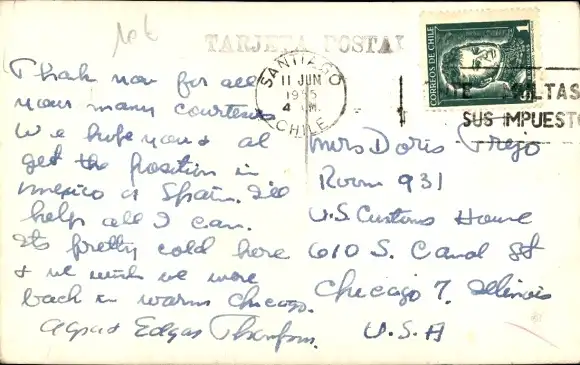 TARJETA POSTAL
CORREOS DE CHILE
1
SANTIAGO
11 JUN
1955
4
CHILE
SUS IMPUESTO
Thank you for all
your many courtesies
We hope you & al
get the position in
Mexico or Spain. I'll
help all I can.
Its pretty cold here
& we wish we were
back in warm Chicago.
Edgar
Mrs Doris Trejo
Room 931
U.S Customs House
610 S. Canal St
Chicago 7, Illinois
U.S.A